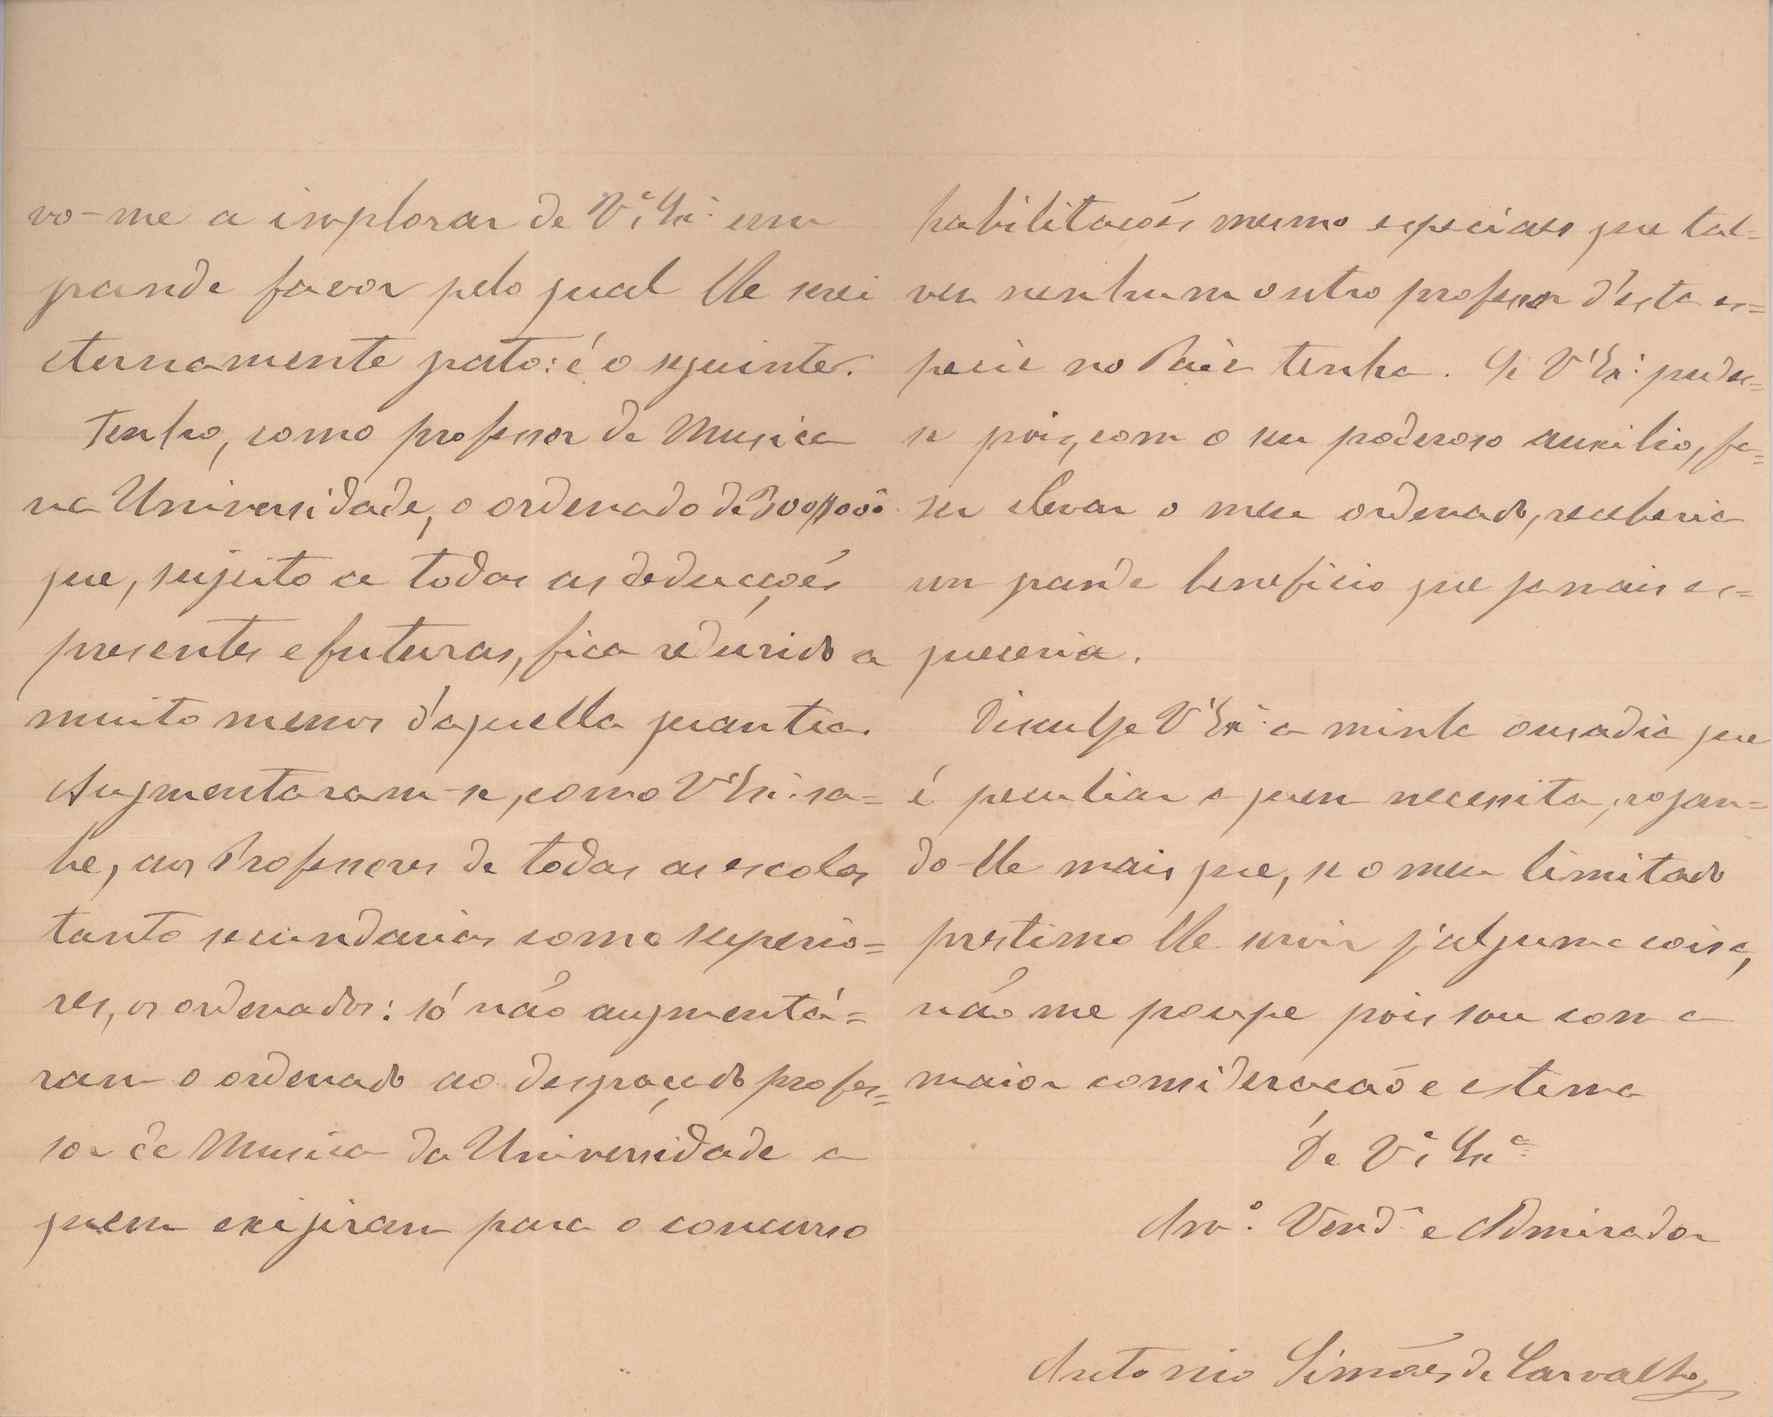 vo-me a implorar de Vª Exª um
grande favor pelo qual lhe serei
eternamente grato: é o seguinte.
Tenho, como professor de Musica
na Universidade, o ordenado de 300$000
que, sujeito a todas as deducções
presentes e futuras, fica reduzido a
muito menos d'aquella quantia.
Augmentaram-se, como V Exª sa=
be, aos Professores de todas as escolas
tanto secundarias como superio=
res, os ordenados: só não augmentá=
ram o ordenado ao desgraçado profes=
sor de Musica da Universidade a
quem exigiram para o concurso
habilitações mesmo especiaes que tal=
vez nenhum outro professor d'esta es=
pecie no Paiz tenha. Se V Exª pudes=
se pois, com o seu poderoso auxilio, fa=
zer elevar o meu ordenado, receberia
um grande beneficio que jamais es=
queceria.
Disculpe V Exª a minha ousadia que
é peculiar a quem necessita, rogan=
do-lhe mais que, se o meu limitado
prestimo lhe servir p'alguma coisa,
não me poupe pois sou com a
maior consideração e estima
De Vª Exª
Amº. Venᵈ e Admirador
Antonio Simões de Carvalho